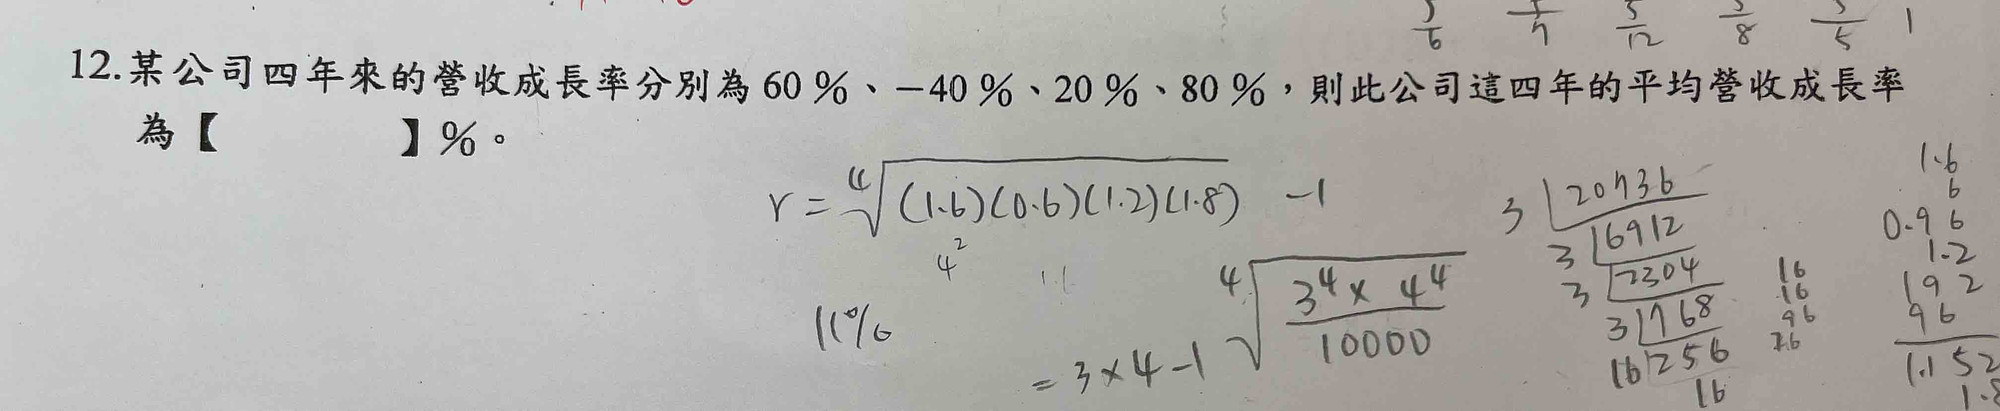 5/6 5/7 5/12 5/8 5/5 1
12.某公司四年來的營收成長率分別為 60 %、−40 %、20 %、80 %，則此公司這四年的平均營收成長率
為【　　　　】%。
r = ⁴√(1.6)(0.6)(1.2)(1.8) −1
4²
11%
⁴√(3⁴ × 4⁴ / 10000)
= 3 × 4 − 1
3 20736
3 6912
3 2304
3 768
16 256
16
16
16
96
1.6
6
0.96
1.2
192
96
1.152
1.8